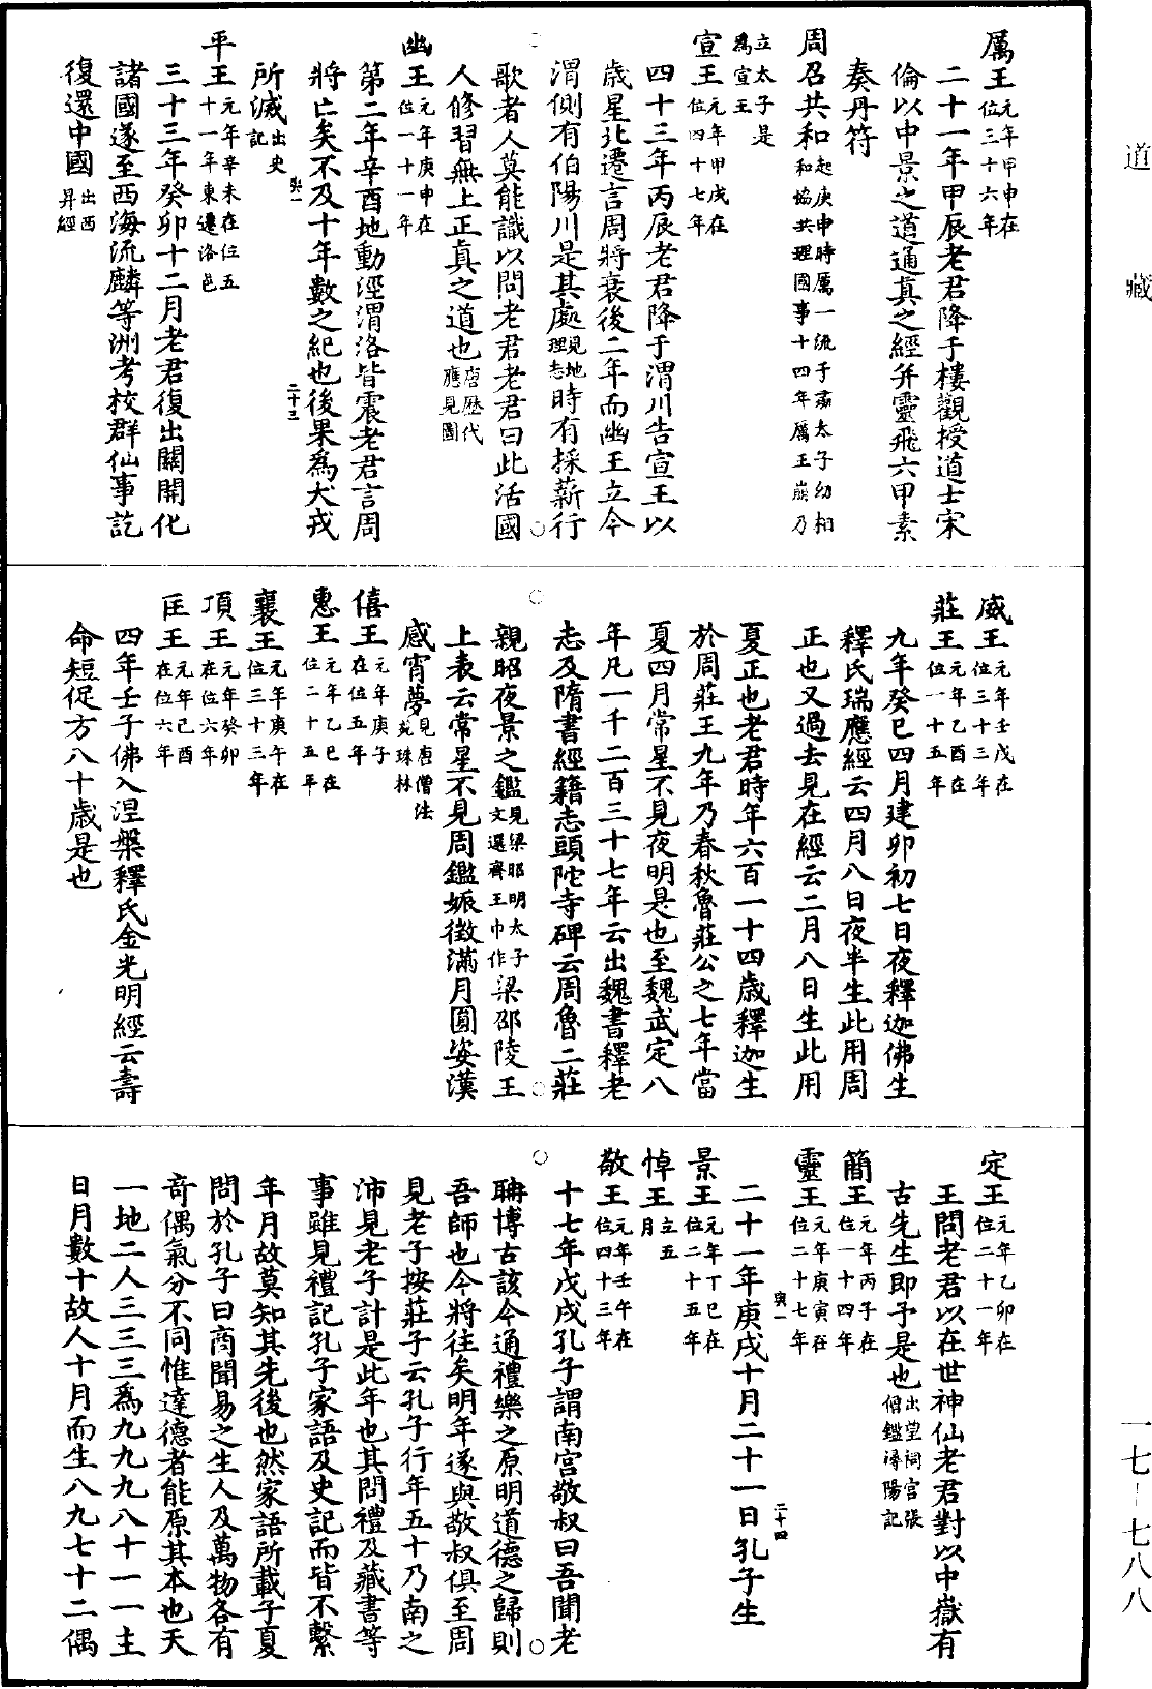 道藏
厲王元年甲申在位三十六年
二十一年甲辰老君降于樓觀授道士宋
倫以中景之道通真之經并靈飛六甲素
奏丹符
周召共和起庚申時厲一流于彘太子幼相和協共理國事十四年厲王崩乃
立太子是為宣王
宣王元年甲戌在位四十七年
四十三年丙辰老君降于渭川告宣王以
歲星北遷言周將衰後二年而幽王立今
渭側有伯陽川是其處見地理志時有採薪行
歌者人莫能識以問老君老君曰此活國
人修習無上正真之道也唐歷代應見圖
幽王元年庚申在位一十一年
第二年辛酉地動涇渭洛皆震老君言周
將亡矣不及十年數之紀也後果為犬戎
與一 二十三
所滅出史記
平王元年辛未在位五十一年東遷洛邑
三十三年癸卯十二月老君復出關開化
諸國遂至西海流麟等洲考校群仙事訖
復還中國出西昇經
威王元年壬戌在位三十三年
莊王元年乙酉在位一十五年
九年癸巳四月建卯初七日夜釋迦佛生
釋氏瑞應經云四月八日夜半生此用周
正也又過去見在經云二月八日生此用
夏正也老君時年六百一十四歲釋迦生
於周莊王九年乃春秋魯莊公之七年當
夏四月常星不見夜明是也至魏武定八
年凡一千二百三十七年云出魏書釋老
志及隋書經籍志頭陀寺碑云周魯二莊
親昭夜景之鑑見梁昭明太子文選齊王巾作梁邵陵王
上表云常星不見周鑑娠徵滿月圓姿漢
感宵夢見唐僧法苑珠林
僖王元年庚子在位五年
惠王元年乙巳在位二十五年
襄王元年庚午在位三十三年
頃王元年癸卯在位六年
匡王元年己酉在位六年
四年壬子佛入涅槃釋氏金光明經云壽
命短促方八十歲是也
定王元年乙卯在位二十一年
王問老君以在世神仙老君對以中嶽有
古先生即予是也出堂詞官張僧鑑潯陽記
簡王元年丙子在位一十四年
靈王元年庚寅在位二十七年
與一 二十四
二十一年庚戌十月二十一日孔子生
景王元年丁巳在位二十五年
悼王立五月
敬王元年壬午在位四十三年
十七年戊戌孔子謂南宮敬叔曰吾聞老
聃博古該今通禮樂之原明道德之歸則
吾師也今將往矣明年遂與敬叔俱至周
見老子按莊子云孔子行年五十乃南之
沛見老子計是此年也其問禮及藏書等
事雖見禮記孔子家語及史記而皆不繫
年月故莫知其先後也然家語所載子夏
問於孔子曰商聞易之生人及萬物各有
奇偶氣分不同惟達德者能原其本也天
一地二人三三三為九九九八十一一主
日月數十故人十月而生八九七十二偶
一七-七八八